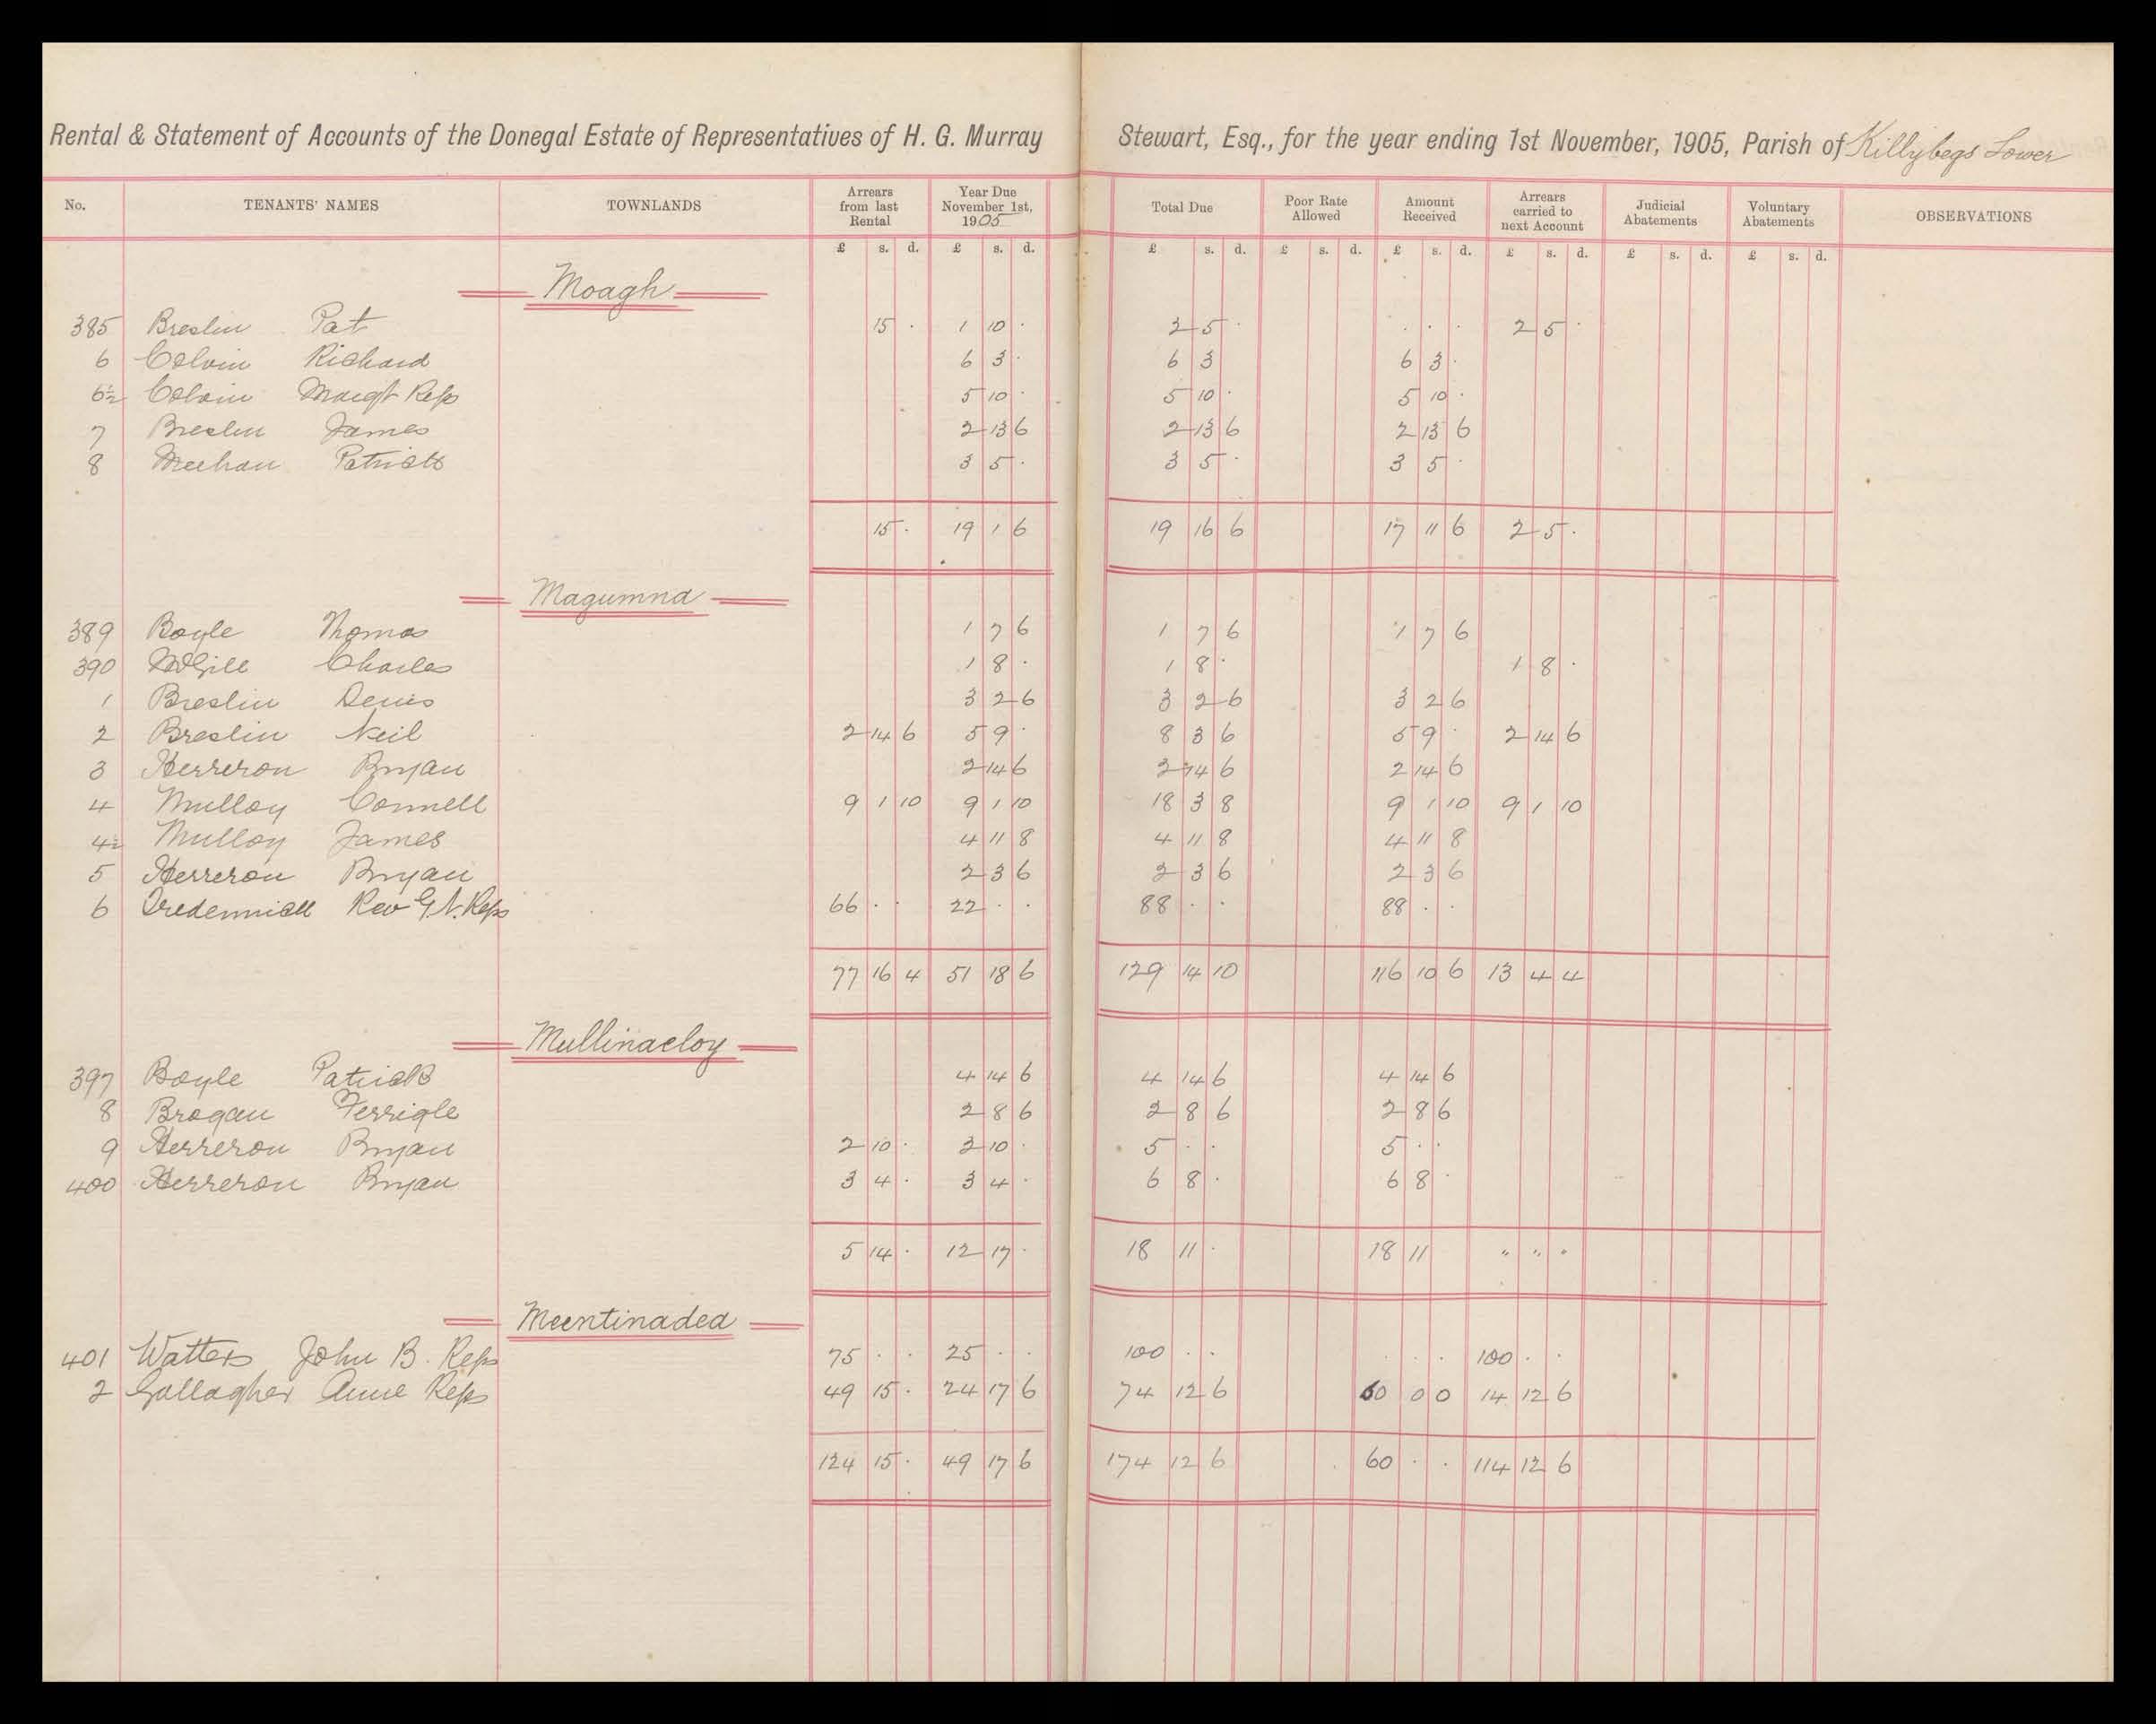 Rental & Statement of Accounts of the Donegal Estate of Representatives of H. G. Murray Stewart, Esq., for the year ending 1st November, 1905, Parish of Killybegs Lower
No. TENANTS' NAMES TOWNLANDS Arrears from last Rental Year Due November 1st, 1905 Total Due Poor Rate Allowed Amount Received Arrears carried to next Account Judicial Abatements Voluntary Abatements OBSERVATIONS
£ s. d. £ s. d. £ s. d. £ s. d. £ s. d. £ s. d. £ s. d. £ s. d.
Moagh
385 Breslin Pat 15 . 1 10 . 2 5 . . . . 2 5 .
6 Colvin Richard 6 3 . 6 3 6 3 .
6½ Colvin Margt Reps 5 10 . 5 10 . 5 10 .
7 Breslin James 2 13 6 2 13 6 2 13 6
8 Meehan Patrick 3 5 . 3 5 . 3 5 .
15 . 19 1 6 19 16 6 17 11 6 2 5 .
Magumna
389 Boyle Thomas 1 7 6 1 7 6 1 7 6
390 McGill Charles 1 8 . 1 8 . 1 8 .
1 Breslin Denis 3 2 6 3 2 6 3 2 6
2 Breslin Neil 2 14 6 5 9 . 8 3 6 5 9 . 2 14 6
3 Herreron Bryan 2 14 6 2 14 6 2 14 6
4 Mulloy Connell 9 1 10 9 1 10 18 3 8 9 1 10 9 1 10
4½ Mulloy James 4 11 8 4 11 8 4 11 8
5 Herreron Bryan 2 3 6 2 3 6 2 3 6
6 Tredennick Rev G.N. Reps 66 . . 22 . . 88 . . 88 . .
77 16 4 51 18 6 129 14 10 116 10 6 13 4 4
Mullinacloy
397 Boyle Patrick 4 14 6 4 14 6 4 14 6
8 Brogan Ferrigle 2 8 6 2 8 6 2 8 6
9 Herreron Bryan 2 10 . 2 10 . 5 . . 5 . .
400 Herreron Bryan 3 4 . 3 4 . 6 8 . 6 8 .
5 14 . 12 17 . 18 11 . 18 11 " " "
Meentinaded
401 Watters John B. Reps 75 . . 25 . . 100 . . . . . 100 . .
2 Gallagher Anne Reps 49 15 . 24 17 6 74 12 6 60 0 0 14 12 6
124 15 . 49 17 6 174 12 6 60 . . 114 12 6